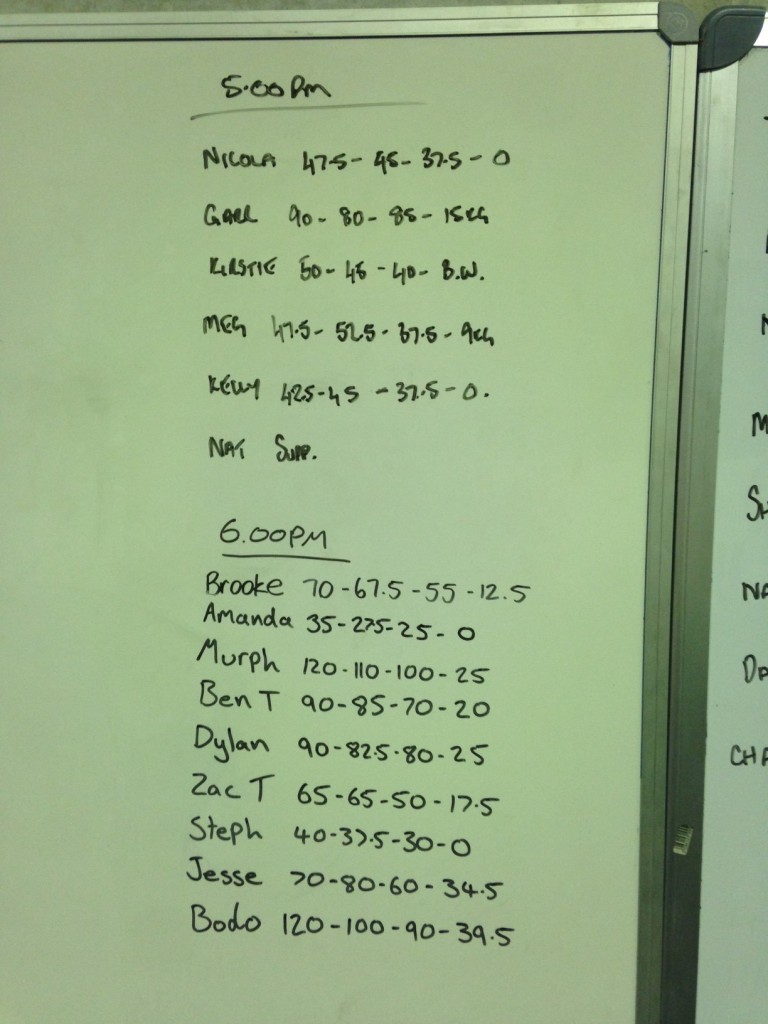 5.00PM
NICOLA 47.5 - 45 - 37.5 - 0
90 - 80 - 85 - 15KG
KIRSTIE 50 - 45 - 40 - B.W.
MEG 47.5 - 52.5 - 37.5 - 9KG
KELLY 42.5 - 45 - 37.5 - 0.
NAT SUPP.
6.00PM
Brooke 70 - 67.5 - 55 - 12.5
Amanda 35 - 27.5 - 25 - 0
Murph 120 - 110 - 100 - 25
Ben T 90 - 85 - 70 - 20
Dylan 90 - 82.5 - 80 - 25
Zac T 65 - 65 - 50 - 17.5
Steph 40 - 37.5 - 30 - 0
Jesse 70 - 80 - 60 - 34.5
Bodo 120 - 100 - 90 - 39.5